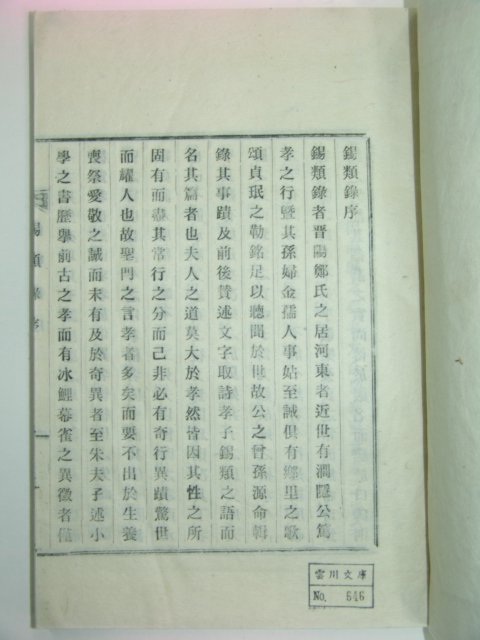 錫類錄序
錫類錄者晋陽鄭氏之居河東者近世有澗隱公篤
孝之行曁其孫婦金孺人事姑至誠俱有鄕里之歌
頌貞珉之勒銘足以聽聞於世故公之曾孫源命輯
錄其事蹟及前後賛述文字取詩孝子錫類之語而
名其篇者也夫人之道莫大於孝然皆因其性之所
固有而盡其常行之分而己非必有奇行異蹟驚世
而耀人也故聖門之言孝喜多矣而要不出於生養
喪祭愛敬之誠而未有及於奇異者至朱夫子述小
學之書歷擧前古之孝而有冰鯉幕雀之異徵者
錫類錄序
雲川文庫
No. 646